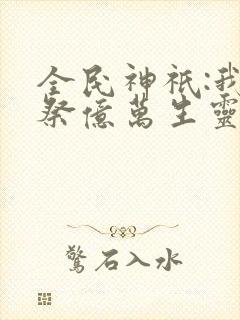 全民神祇:我
祭億萬生靈
驚石入水